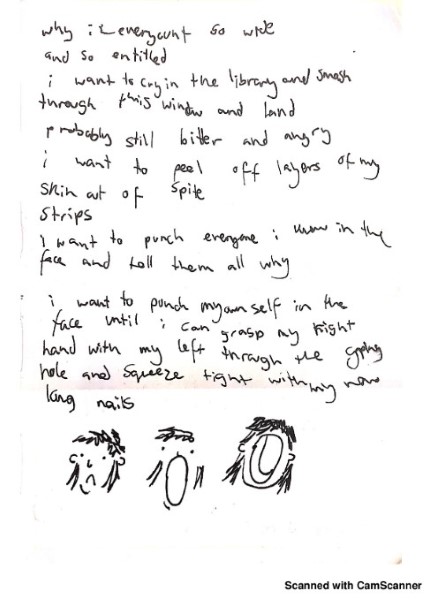 why is everyount so wide
and so entitled
i want to cry in the library and smash
through this window and land
probably still bitter and angry
i want to peel off layers of my
skin out of spite
strips
I want to punch everyone i know in the
face and tell them all why
i want to punch my own self in the
face until i can grasp my right
hand with my left through the gaping
hole and squeeze tight with my now
long nails
Scanned with CamScanner